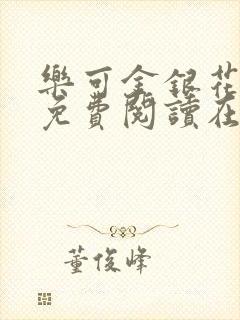 樂可金銀花
免費閱讀在
董俊峰